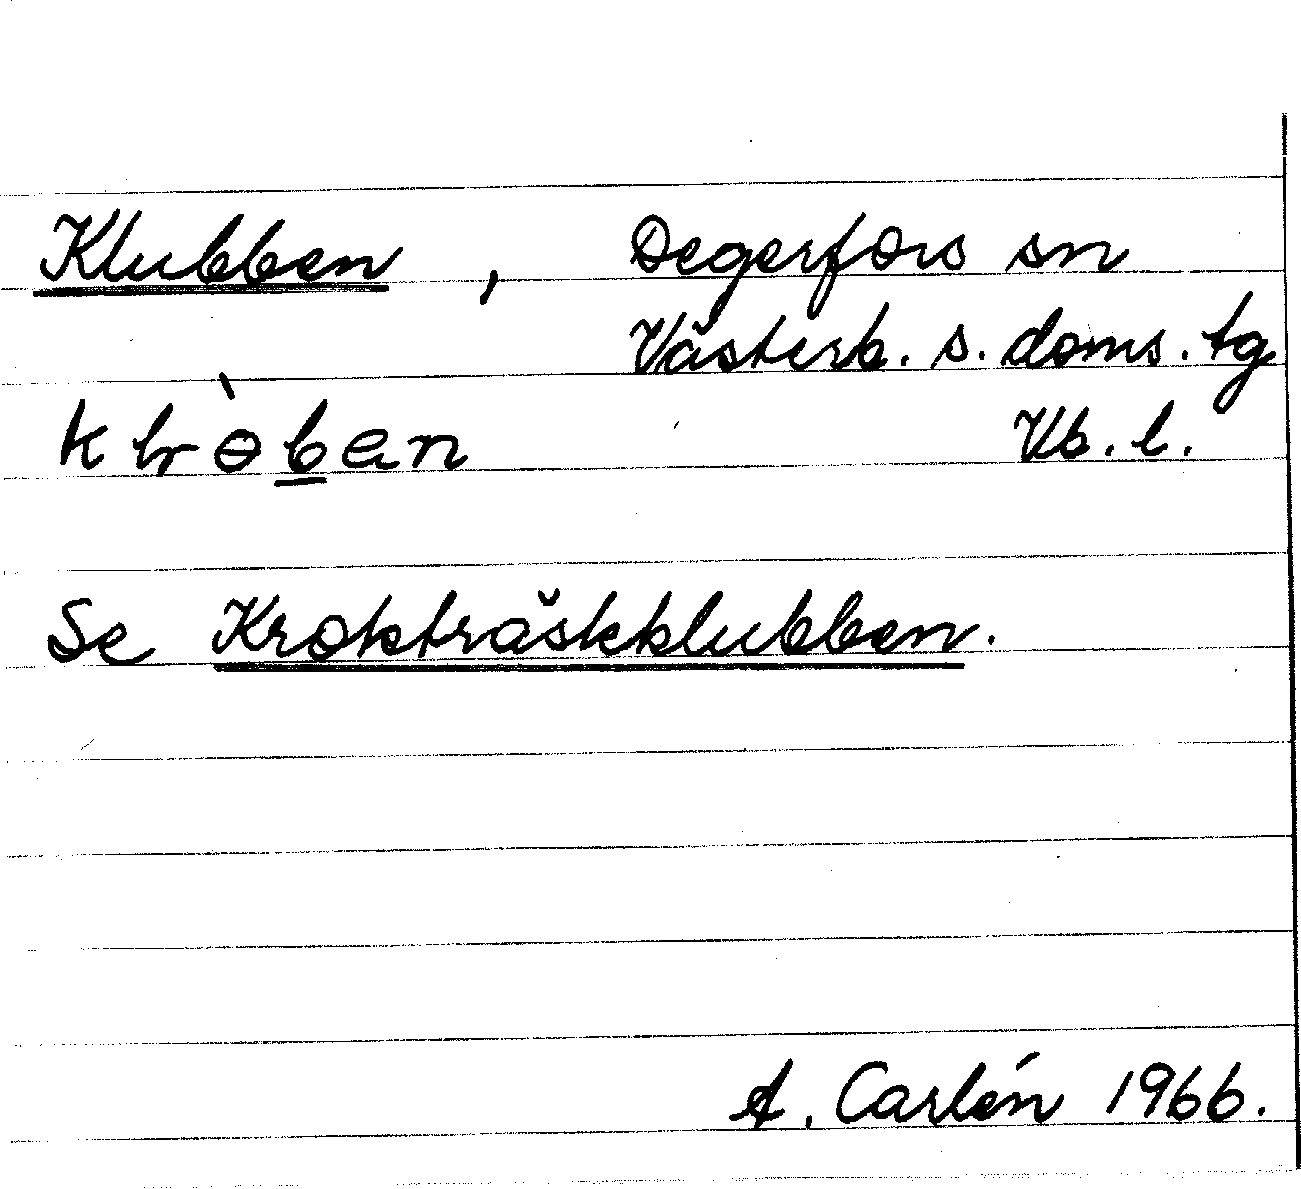 Klubben, Degerfors sn
Västerb. s. doms. tg
Vb. l.
Se Krokträskklubben.
A. Carlén 1966.